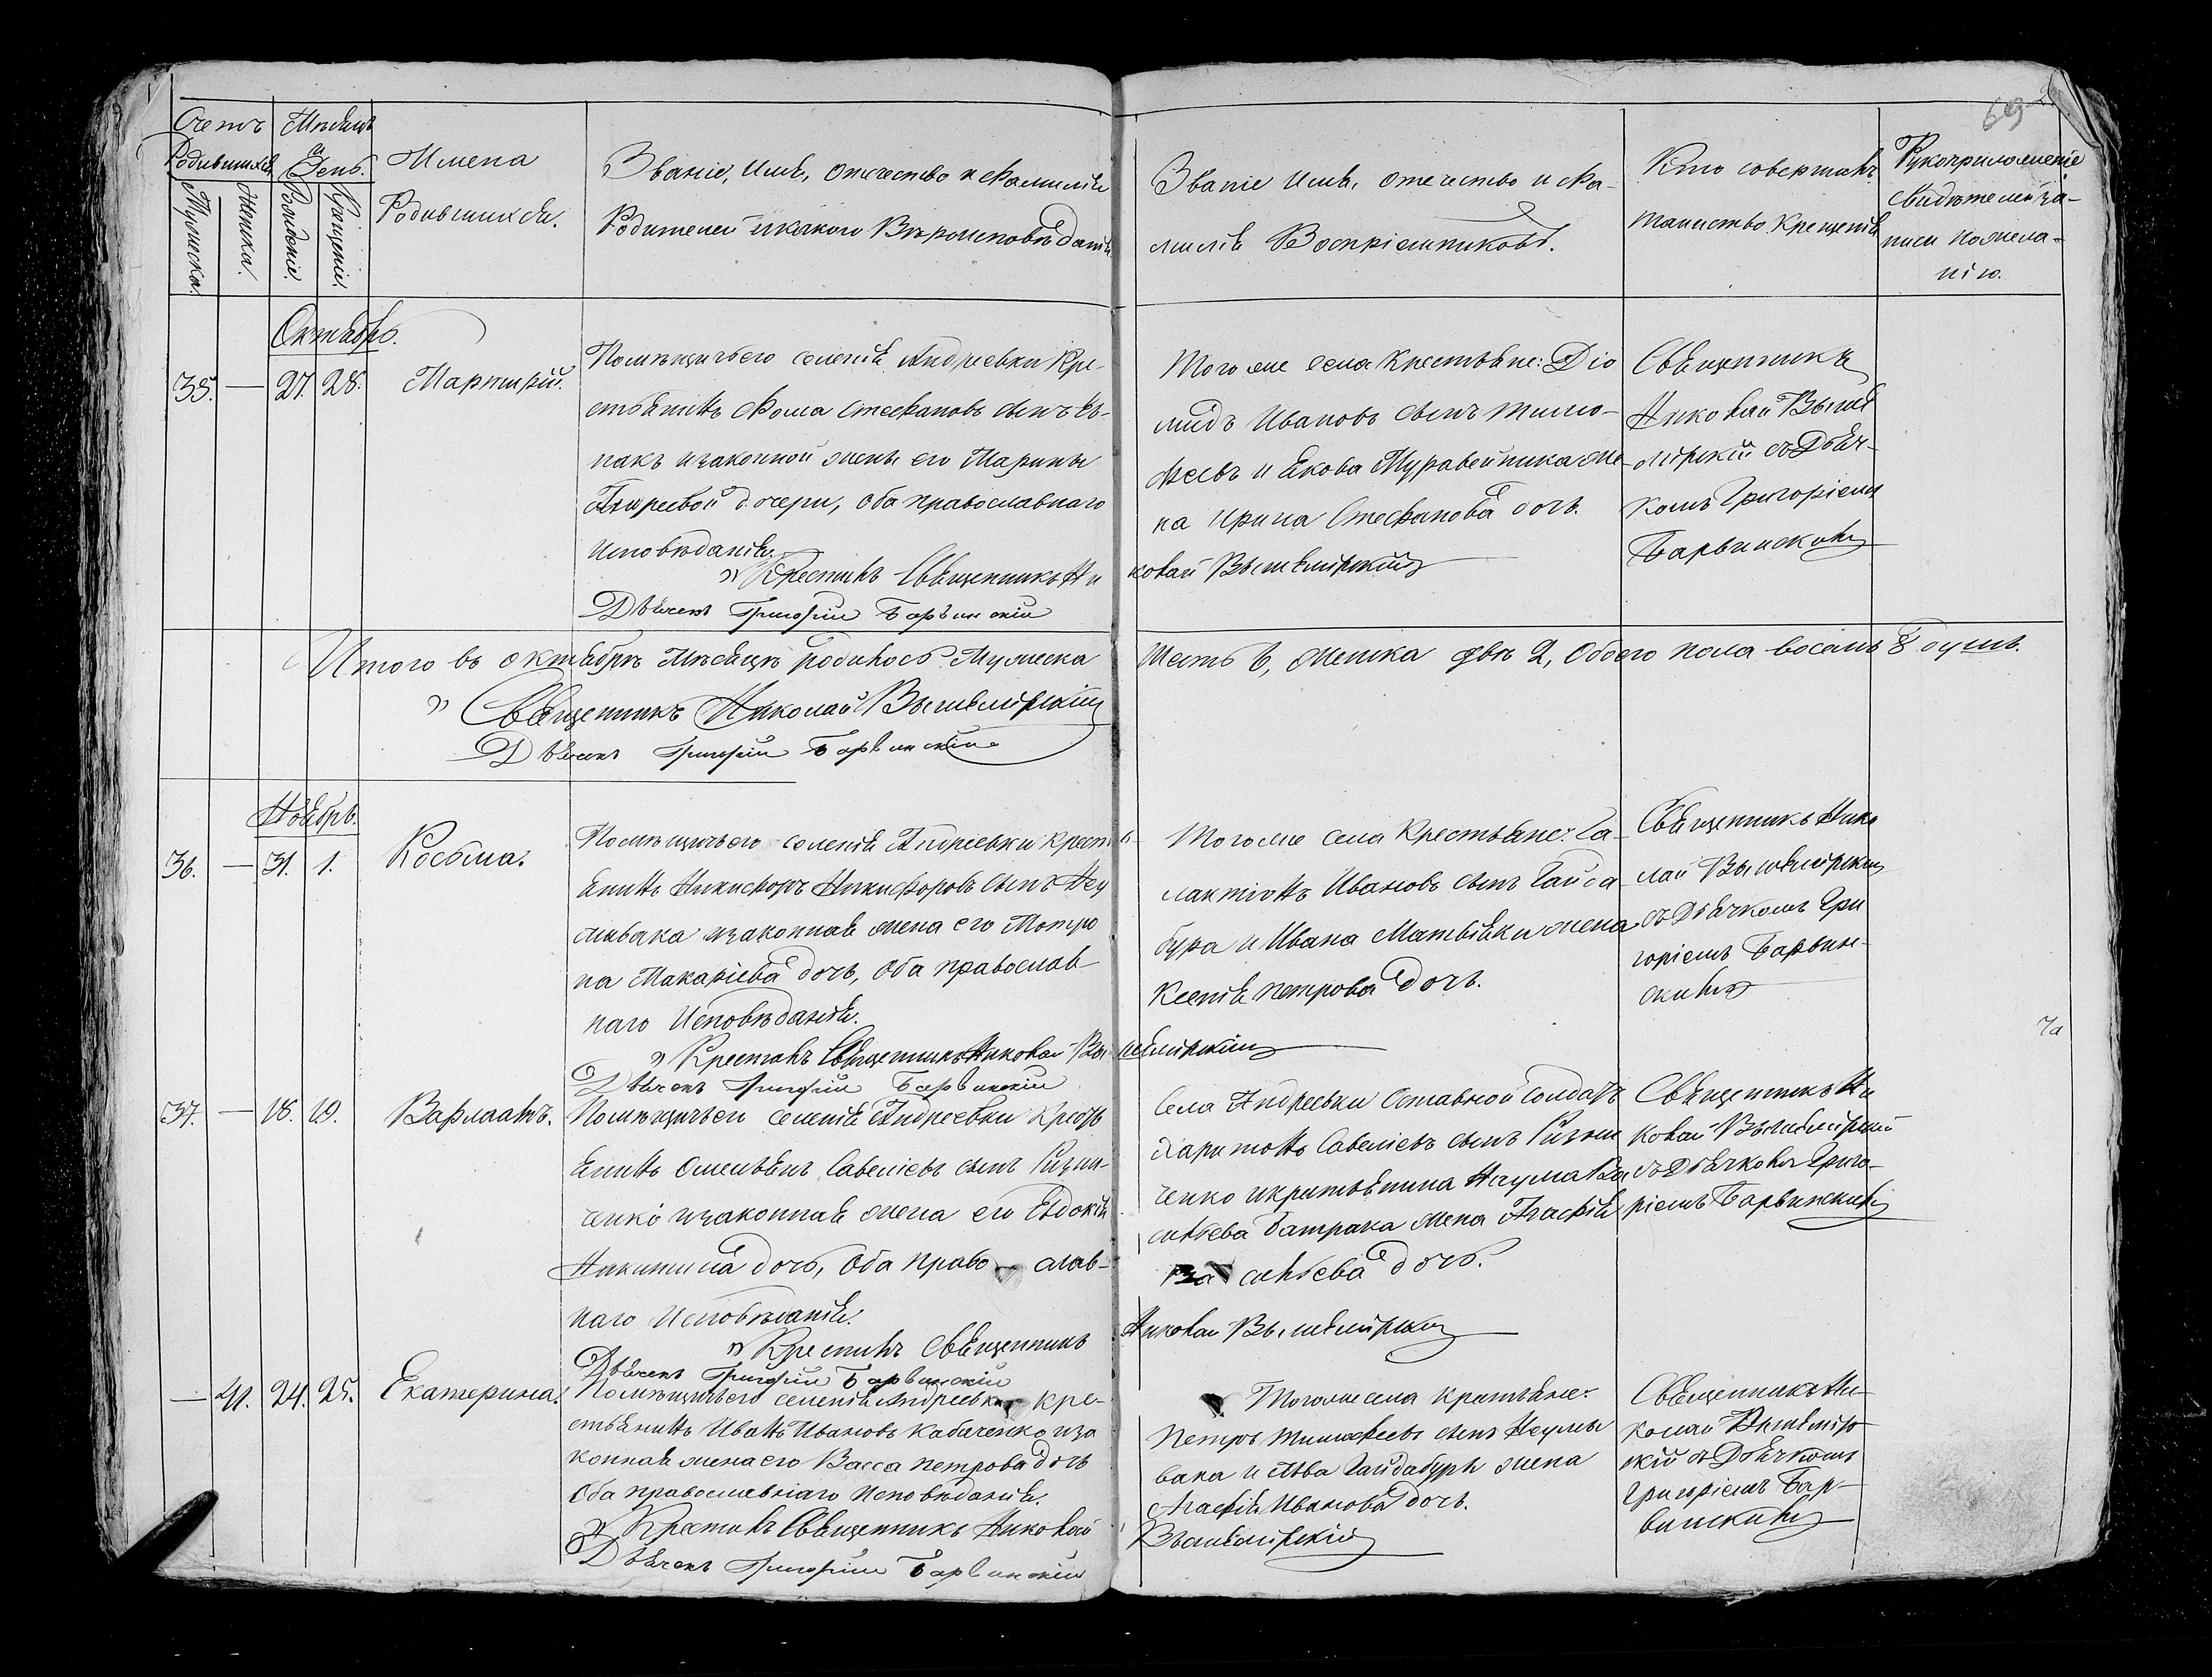 69
Счетъ
Родившихся
Мужеска.
Женска.
Мѣсяцъ
и
День.
Рожденіе.
Крещеніе.
Имена
Родившихся.
Званіе, Имя, Отечество и Фамилія
Родителей и какого Вѣроисповѣданія
Званіе Имя, отечество и Фа-
милія Воспріемниковъ.
Кто совершалъ
таинство Крещенія
Рукоприложеніе
свидѣтелей за-
писи по жела-
нію.
Октябрь.
35. — 27. 28. Мартирій.
Помѣщичьего селенія Андреевки Кре-
стьянинъ Фома Стефановъ сынъ
пакъ изаконной жены его Марины
Андреевой дочери, оба православнаго
Исповѣданія.
Того же села Крестьяне: Діо
мидъ Ивановъ сынъ Тимо-
феевъ и Якова Муравейника же
на Ирина Стефанова дочь.
Священникъ
Николай Вышемірскій съ Дьяч-
комъ Григоріемъ
Барвинскимъ
Крестилъ Священникъ Ни
колай Вышемірскій
Дьячекъ Григорій Барвинскій
Итого въ октябрѣ Мѣсяцѣ родилось Мужеска
шесть 6, женска двѣ 2, Обоего пола восемь 8 душъ.
Священникъ Николай Вышемірскій
Дьячекъ Григорій Барвинскій
Ноябрь.
36. — 31. 1. Косьма.
Помѣщичьего селенія Андреевки Крест
янинъ Никифоръ Никифоровъ сынъ Неу
мывака изаконная жена его Мотро
на Макаріева дочь, Оба православ-
наго Исповѣданія.
Того же села Крестьяне: Га-
лактіонъ Ивановъ сынъ Гайда
бура и Ивана Матвѣйки жена
Ксенія Петрова дочь.
Священникъ Нико
лай Вышемірскій
съ Дьячкомъ Гри
горіемъ Барвин-
скимъ
Крестилъ Священникъ Николай Вы
шемірскій
Дьячекъ Григорій Барвинскій
37. — 18. 19. Варлаамъ.
Помѣщичьего селенія Андреевки Крестъ
янинъ Омельянъ Савеліевъ сынъ Ризни-
ченко изаконная жена его Евдокія
Никитина дочь, Оба Право слав-
наго Исповѣданія.
Села Андреевки Оставной Солдатъ
Харитонъ Савеліевъ сынъ Ризни
ченко и критьянина Наума Ва
сильева батрака жена Агафія
дочь.
Священникъ Ни
колай Вышемірскій
съ Дьячкомъ Григо-
ріемъ Барвинскимъ
Крестилъ Священникъ
Николай Вышемірскій
Дьячекъ Григорій Барвинскій
— 21. 24. 25. Екатерина.
Помѣщичьего селенія Андреевки кре-
стьянинъ Иванъ Ивановъ Кабаченко иза
конная жена его Васса Петрова дочь
Оба православнаго Исповѣданія.
Тогоже села критьяне:
Петръ Тимофеевъ сынъ Неумы
вака и Льва Гайдабуры жена
Агафія Иванова дочь.
Священникъ Ни-
колай Вышемір
скій съ Дьячкомъ
Григоріемъ Бар-
винскимъ
Крестилъ Священникъ Николай
Вышемірскій
Дьячекъ Григорій Барвинскій